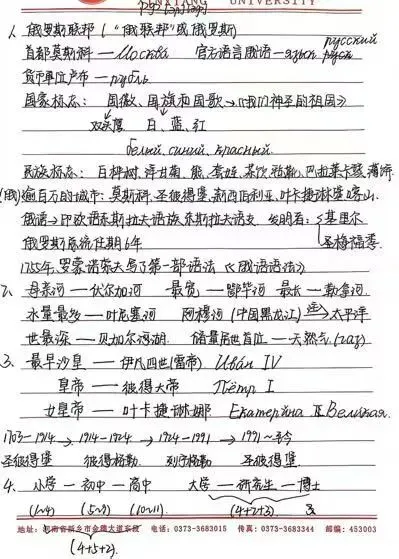 XINXIANG UNIVERSITY
1、俄罗斯联邦（"俄联邦"或俄罗斯）
русский
首都莫斯科 — Москва 官方语言俄语 — язык
货币单位卢布 — рубль
国家标志： 国徽、国旗和国歌→《我们神圣的祖国》
双头鹰 白、蓝、红
белый, синий, красный.
民族标志：白桦树、洋甘菊、熊、套娃、茶炊
(俄)逾百万的城市：莫斯科、圣彼得堡、新西伯利亚、叶卡捷琳堡、喀山
俄语→印欧语系斯拉夫语族东斯拉夫语支 发明者：基里尔
俄罗斯总统任期6年 圣梅福季
1755年，罗蒙诺索夫写了第一部语法《俄语语法》
2、母亲河 — 伏尔加河 最宽 — 鄂毕河 最长 — 勒拿河
水量最多 — 叶尼塞河 阿穆河（中国黑龙江）→太平洋
世最深 — 贝加尔河湖. 储量居世首位 — 天然气(газ)
3、最早沙皇 — 伊凡四世(雷帝) Иван IV
皇帝 — 彼得大帝 Пётр I
女皇帝 — 叶卡捷琳娜 Екатерина II Великая.
1703-1914 → 1914-1924 → 1924-1991 → 1991~至今
圣彼得堡 彼得格勒 列宁格勒 圣彼得堡
4、小学 — 初中 — 高中 大学 — 研究生 — 博士
(1~4) (5~9) (10~11) (4+2+3) 3
地址：河南省新乡市金穗大道东段 电话：0373-3683015 传真：0373-3683344 邮编：453003
(4+5+2)